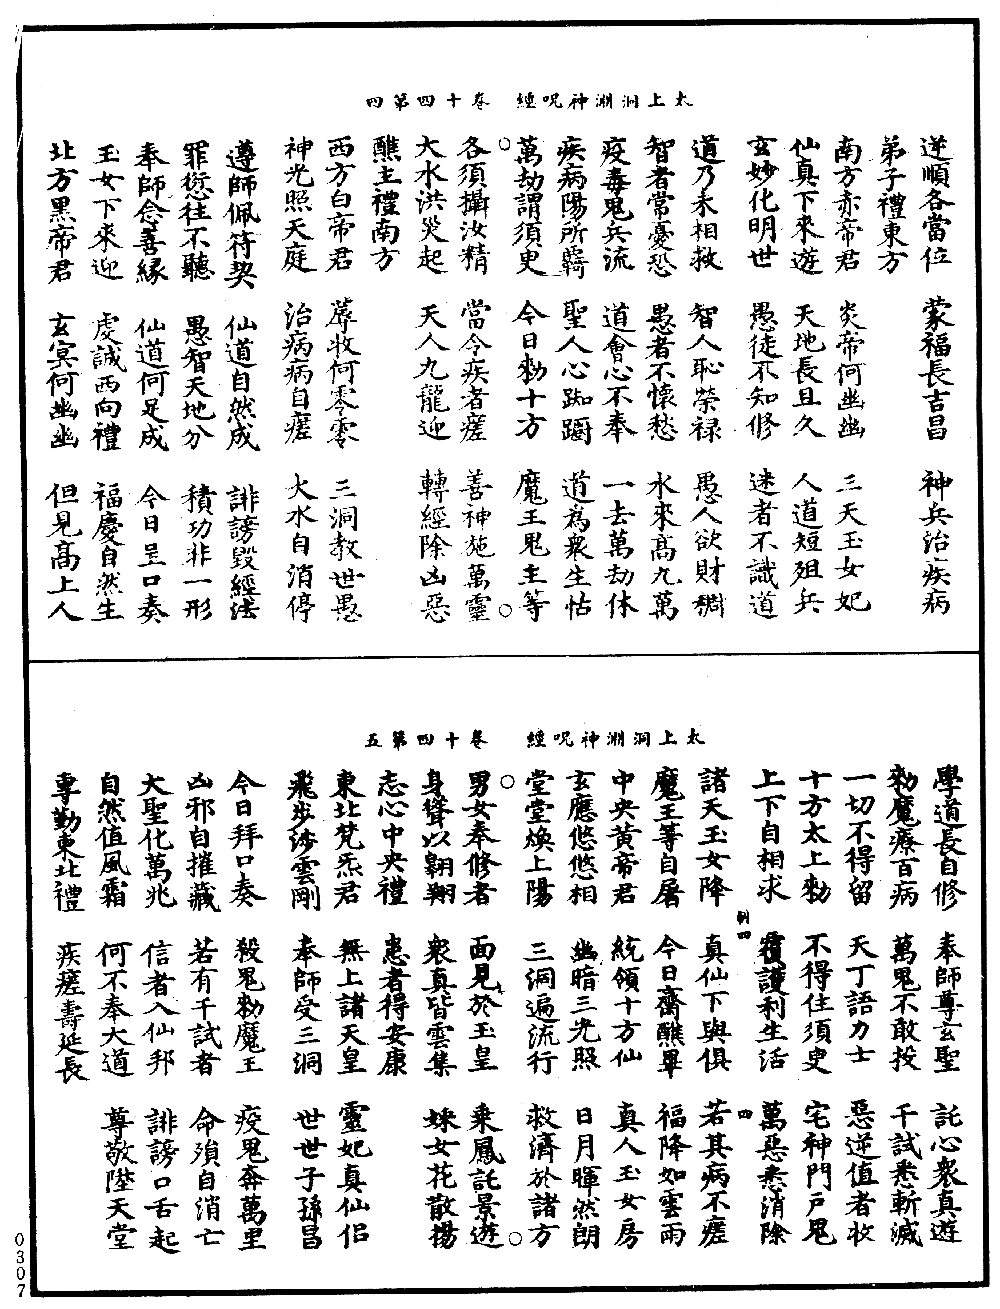 太上洞淵神呪經　卷十四第四
逆順各當位　蒙福長吉昌　神兵治疾病
弟子禮東方
南方赤帝君　炎帝何幽幽　三天玉女妃
仙真下來遊　天地長且久　人道短殂兵
玄妙化明世　愚徒不知修　迷者不識道
道乃未相救　智人恥榮祿　愚人欲財稠
智者常憂恐　愚者不懷愁　水來高九萬
疫毒鬼兵流　道會心不奉　一去萬劫休
疾病陽所羇　聖人心踟躕　道為衆生怙
萬劫謂須臾　今日勑十方　魔王鬼主等
○各須攝汝精　當令疾者瘥　善神施萬靈○
大水洪災起　天人九龍迎　轉經除凶惡
醮主禮南方
西方白帝君　蓐收何零零　三洞教世愚
神光照天庭　治病病自瘥　大水自消停
遵師佩符契　仙道自然成　誹謗毀經法
罪愆往不聽　愚智天地分　積功非一形
奉師念善緣　仙道何足成　今日呈口奏
玉女下來迎　虔誠西向禮　福慶自然生
北方黑帝君　玄冥何幽幽　但見高上人
太上洞淵神呪經　卷十四第五
學道長自修　奉師尊玄聖　託心衆真遊
勑魔療百病　萬鬼不敢按　千試悉斬滅
一切不得留　天丁語力士　惡逆值者收
十方太上勑　不得住須臾　宅神門戶鬼
上下自相求　覆護利生活　萬惡悉消除
別四　四
諸天玉女降　真仙下與俱　若其病不瘥
魔王等自屠　今日齋醮畢　福降如雲雨
中央黃帝君　統領十方仙　真人玉女房
玄應悠悠相　幽暗三光照　日月暉然朗
堂堂煥上陽　三洞遍流行　救濟於諸方
○男女奉修者　面見於玉皇　乘鳳託景遊○
身聳以翱翔　衆真皆雲集　婇女花散揚
志心中央禮　患者得安康
東北梵炁君　無上諸天皇　靈妃真仙侶
飛步涉雲剛　奉師受三洞　世世子孫昌
今日拜口奏　殺鬼勑魔王　疫鬼奔萬里
凶邪自摧藏　若有千試者　命殞自消亡
大聖化萬兆　信者入仙邦　誹謗口舌起
自然值風霜　何不奉大道　尊敬陞天堂
專勤東北禮　疾瘥壽延長
0307